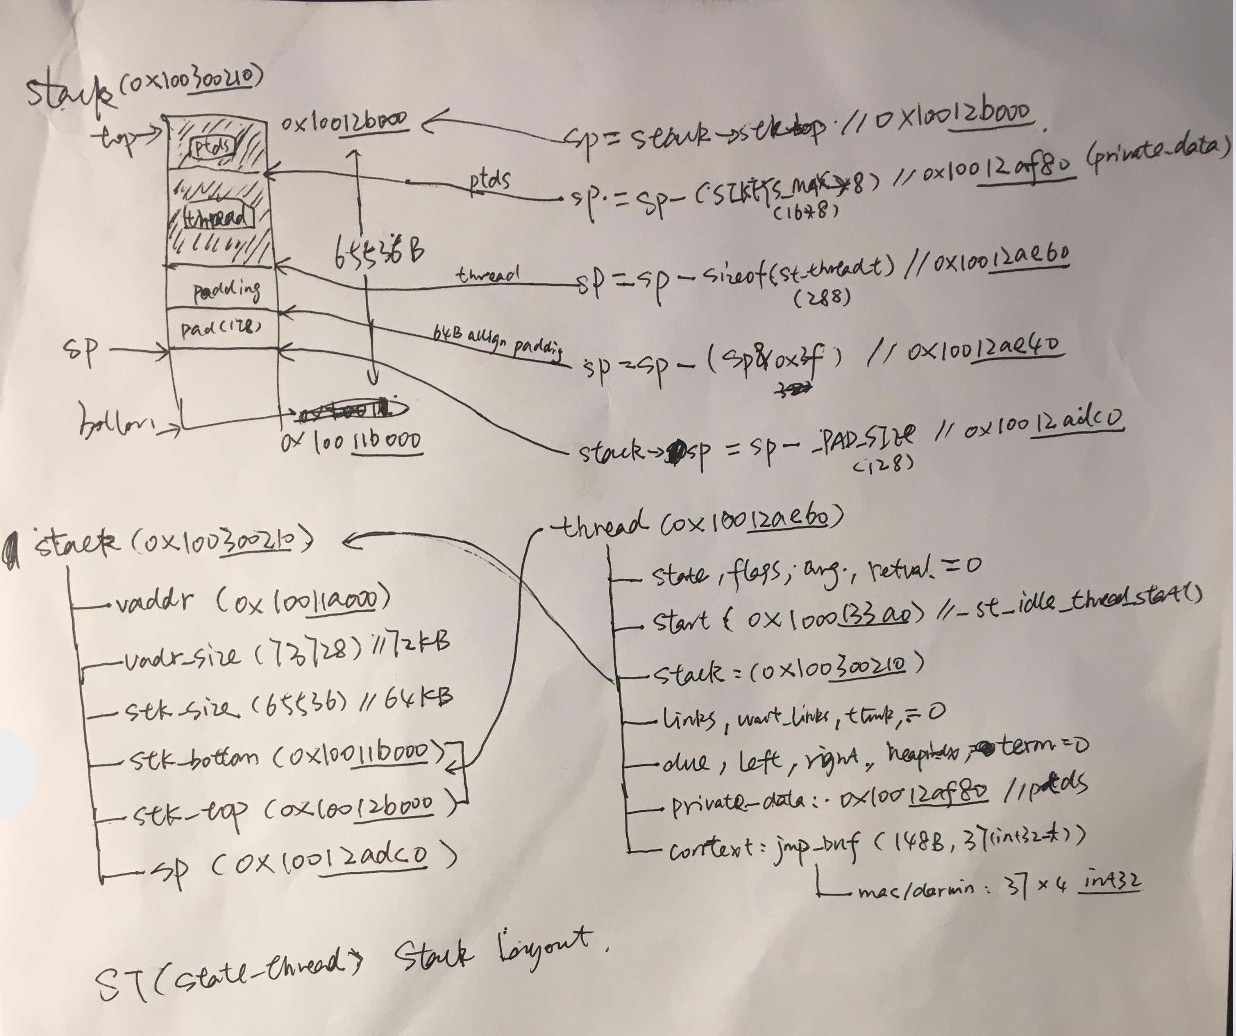 stack (0x100300210)
top
ptds
thread
padding
pad(128)
sp
0x10012b000
65536B
0x10011b000
sp = stack→stk_top // 0x10012b000
ptds
sp = sp - ( *8) // 0x10012af80 (private_data)
(16*8)
thread
sp = sp - sizeof(st_thread_t) // 0x10012ae60
(288)
64B align padding
sp = sp - (sp & 0x3f) // 0x10012ae40
stack→sp = sp - _PAD_SIZE // 0x10012adc0
(128)
stack (0x100300210)
vaddr (0x10011a000)
vadr_size (73728) // 72KB
stk_size (65536) // 64KB
stk_bottom (0x10011b000)
stk-top (0x10012b000)
sp (0x10012adc0)
thread (0x10012ae60)
state, flags, arg, retval = 0
start ( 0x1000133a0) // _st_idle_thread_start()
stack = (0x100300210)
links, wait_links, = 0
due, left, right, term = 0
private_data: 0x10012af80 // ptds
context: jmp_buf (148B, 37(int32_t))
mac/darwin: 37 × 4 int32
ST(state-thread) Stack Layout.